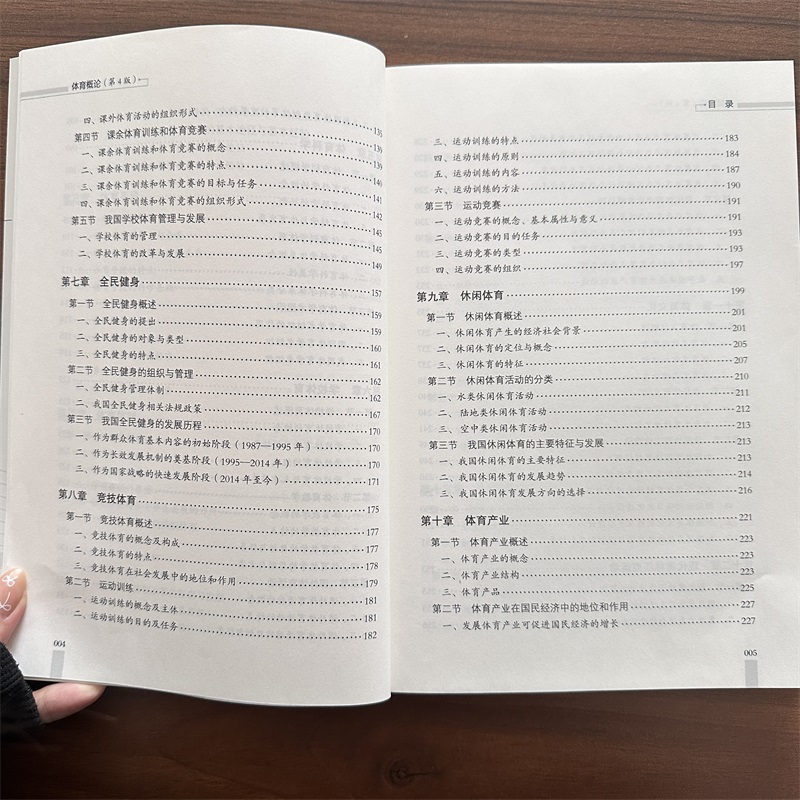 体育概论（第4版）
四、课外体育活动的组织形式 138
第四节 课余体育训练和体育竞赛 139
一、课余体育训练和体育竞赛的概念 139
二、课余体育训练和体育竞赛的特点 140
三、课余体育训练和体育竞赛的目标与任务 141
四、课余体育训练和体育竞赛的组织形式 142
第五节 我国学校体育管理与发展 145
一、学校体育的管理 145
二、学校体育的改革与发展 149
第七章 全民健身 157
第一节 全民健身概述 159
一、全民健身的提出 159
二、全民健身的对象与类型 160
三、全民健身的特点 161
第二节 全民健身的组织与管理 162
一、全民健身管理体制 162
二、我国全民健身相关法规政策 167
第三节 我国全民健身的发展历程 170
一、作为群众体育基本内容的初始阶段（1987—1995年） 170
二、作为长效发展机制的奠基阶段（1995—2014年） 170
三、作为国家战略的快速发展阶段（2014年至今） 171
第八章 竞技体育 175
第一节 竞技体育概述 177
一、竞技体育的概念及构成 177
二、竞技体育的特点 178
三、竞技体育在社会发展中的地位和作用 179
第二节 运动训练 181
一、运动训练的概念及主体 181
二、运动训练的目的及任务 182
004
目 录
三、运动训练的特点 183
四、运动训练的原则 184
五、运动训练的内容 187
六、运动训练的方法 190
第三节 运动竞赛 191
一、运动竞赛的概念、基本属性与意义 191
二、运动竞赛的目的任务 193
三、运动竞赛的类型 193
四、运动竞赛的组织 197
第九章 休闲体育 199
第一节 休闲体育概述 201
一、休闲体育产生的经济社会背景 201
二、休闲体育的定位与概念 205
三、休闲体育的特征 207
第二节 休闲体育活动的分类 210
一、水类休闲体育活动 211
二、陆地类休闲体育活动 212
三、空中类休闲体育活动 213
第三节 我国休闲体育的主要特征与发展 213
一、我国休闲体育的主要特征 213
二、我国休闲体育的发展趋势 214
三、我国休闲体育发展方向的选择 216
第十章 体育产业 221
第一节 体育产业概述 223
一、体育产业的概念 223
二、体育产业结构 223
三、体育产品 225
第二节 体育产业在国民经济中的地位和作用 227
一、发展体育产业可促进国民经济的增长 227
005